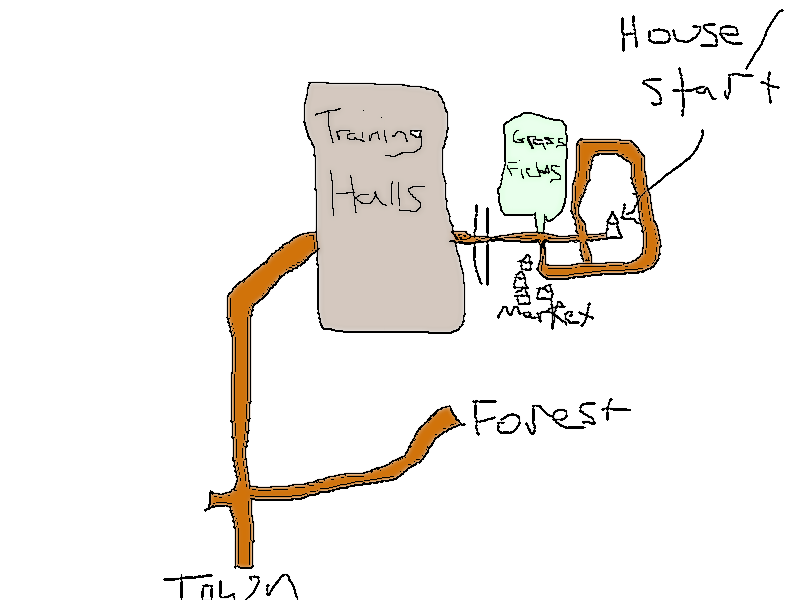 House/
start
Training
Halls
Grass
Fields
Market
Forest
Town